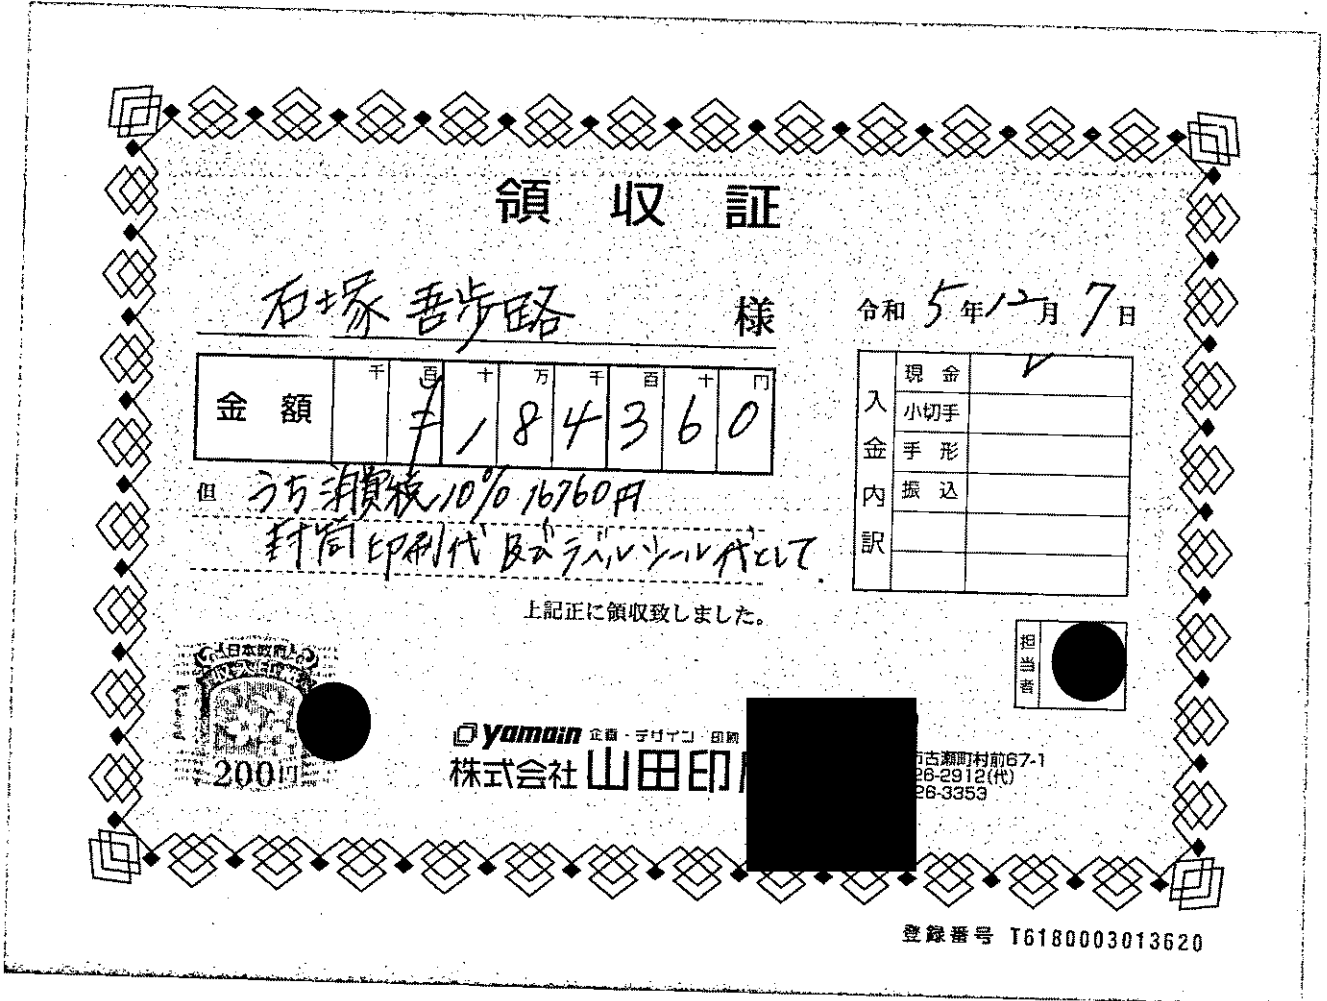 領収証
石塚 吾歩路 様
令和 5年 12月 7日
金額
千 百 十 万 千 百 十 円
¥ 1 8 4 3 6 0
入金内訳
現金 ✓
小切手
手形
振込
但 うち消費税10% 16760円
封筒印刷代 及びラベルシール代として
上記正に領収致しました。
担当者
日本政府
収入印紙
200円
yamain 企画・デザイン・印刷
株式会社 山田印
古瀬町村前67-1
26-2912(代)
26-3353
登録番号 T6180003013620